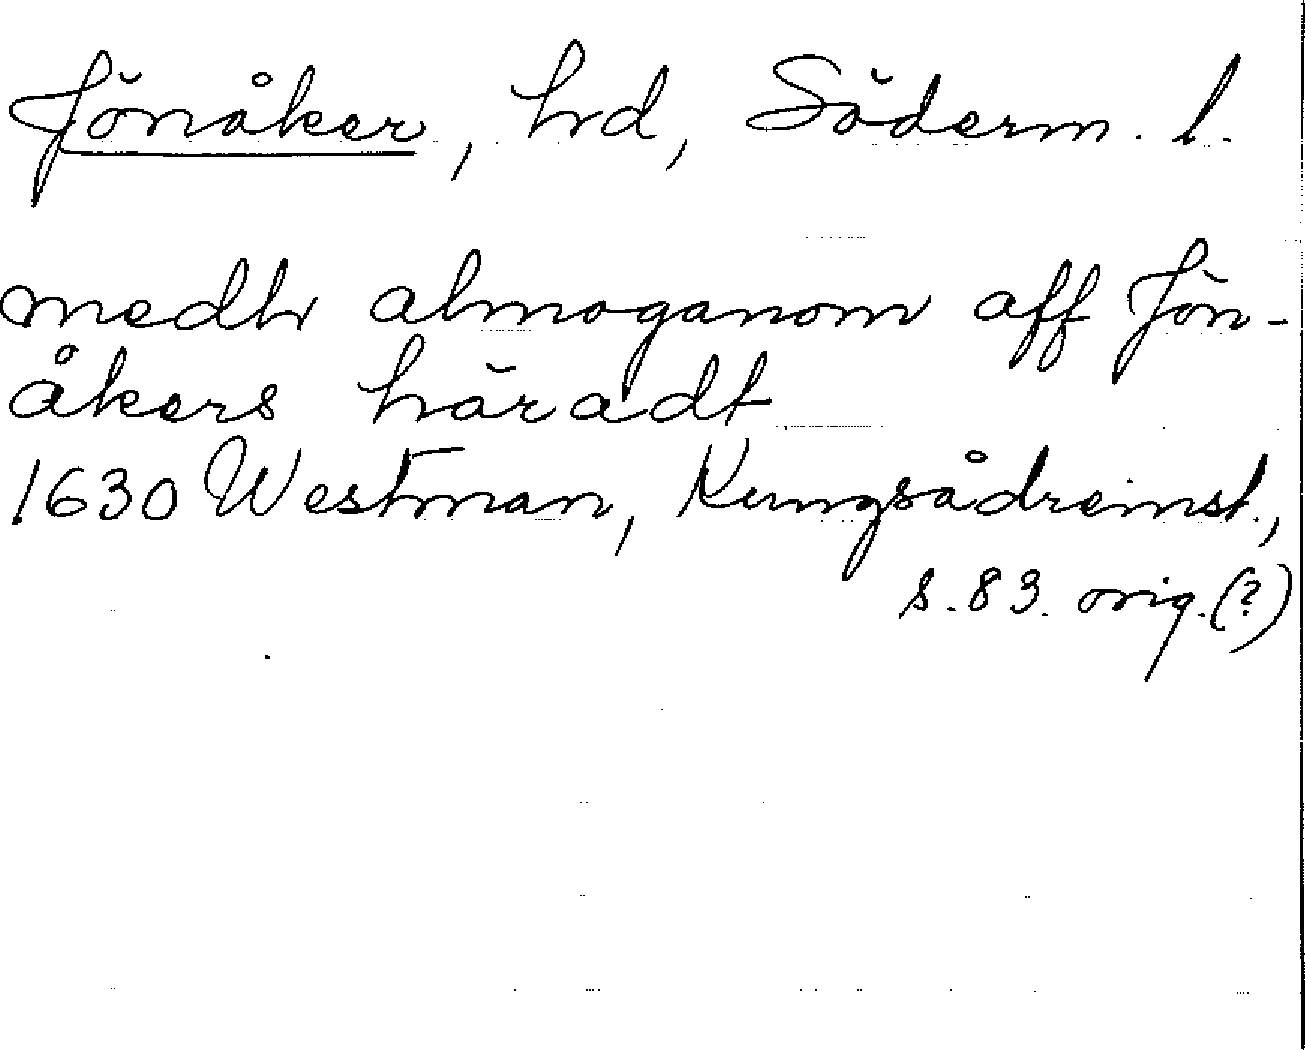 Jönåker, hd, Söderm. l.
medh almoganom aff Jön-
åkers häradt
1630 Westman, Kungsådreinst.,
s. 83. orig. (?)